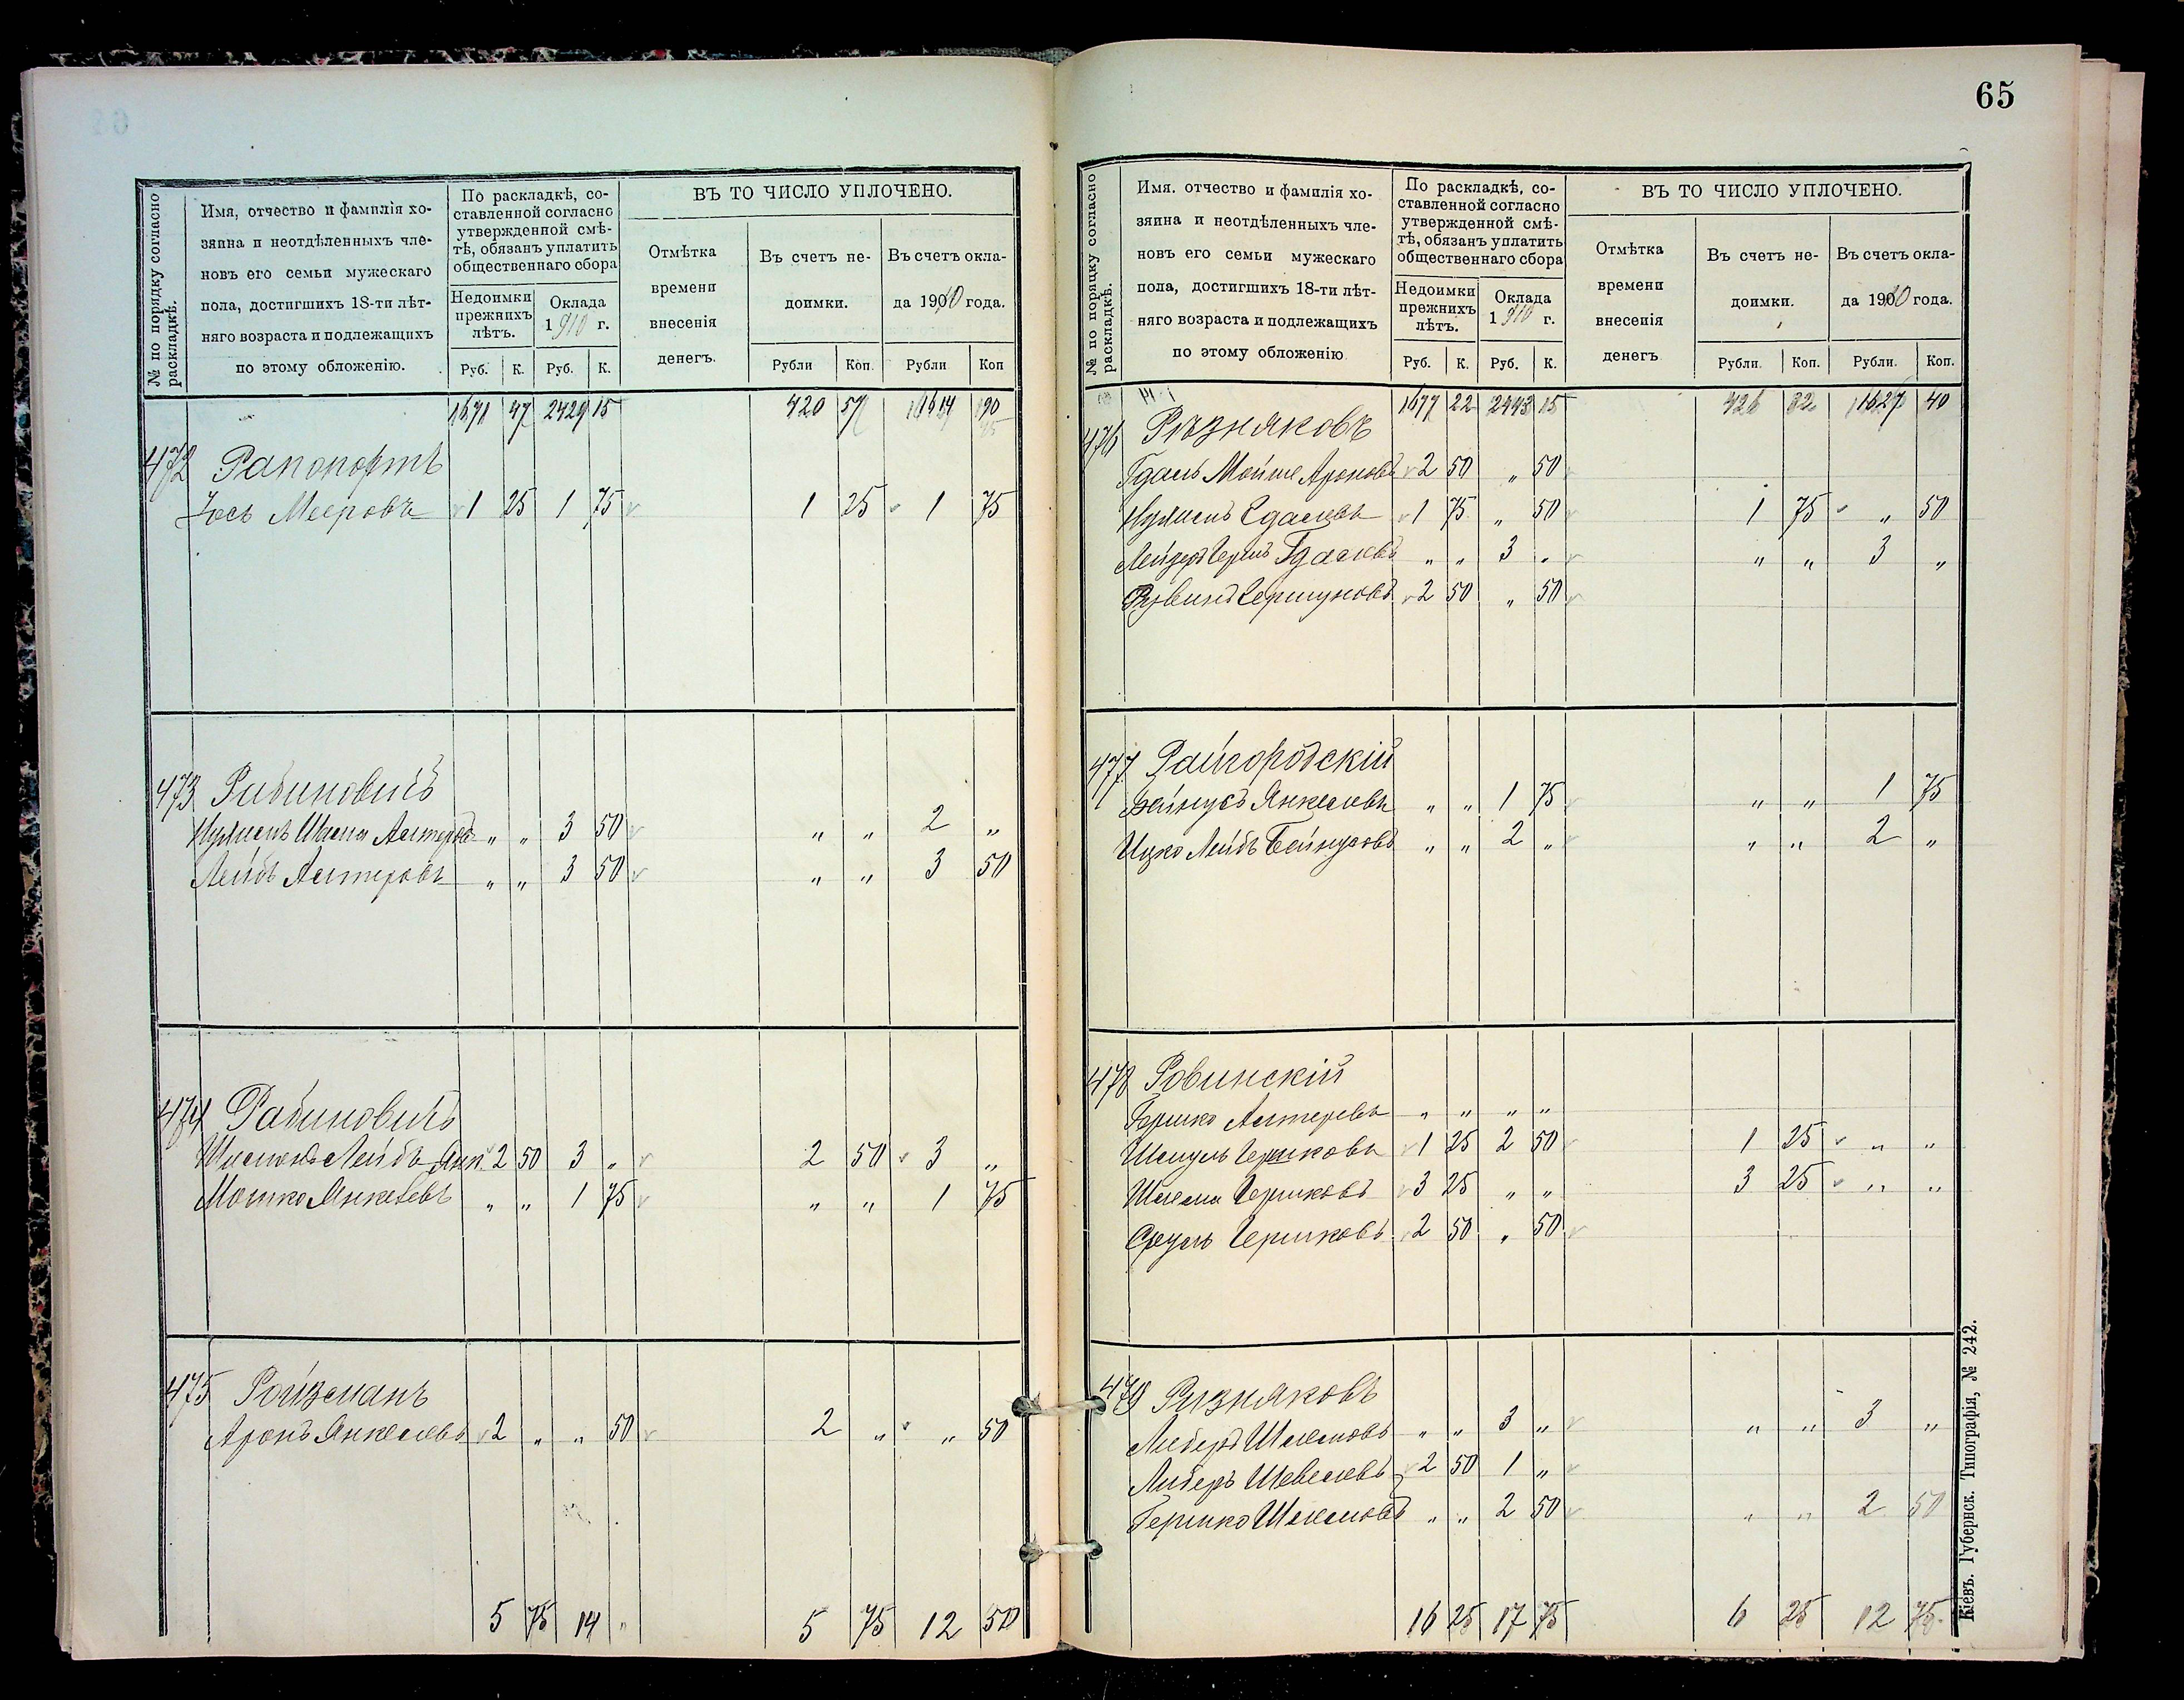 65
№ по порядку согласно раскладкѣ.
Имя, отчество и фамилія хо-
зяина и неотдѣленныхъ чле-
новъ его семьи мужескаго
пола, достигшихъ 18-ти лѣт-
няго возраста и подлежащихъ
по этому обложенію.
По раскладкѣ, со-
ставленной согласно
утвержденной смѣ-
тѣ, обязанъ уплатить
общественнаго сбора
Недоимки
прежнихъ
лѣтъ.
Оклада
1910 г.
ВЪ ТО ЧИСЛО УПЛОЧЕНО.
Отмѣтка
времени
внесенія
денегъ.
Въ счетъ не-
доимки.
Въ счетъ окла-
да 1910 года.
Руб. К. Руб. К. Рубли Коп. Рубли Коп
1671 47 2429 15 420 57 1614 90
472 Рапопортъ
Іось Мееровъ 1 25 1 75 1 25 1 75
473 Рабиновичъ
Шлема Алтеровъ " " 3 50 " " 2 "
Лейбъ Алтеровъ " " 3 50 " " 3 50
474 Рабиновичъ
Шлёма Лейбъ Янк. 2 50 3 " 2 50 3 "
Мошко Янкелевъ " " 1 75 " " 1 75
475 Ройзманъ
Аронъ Янкелевъ 2 " " 50 2 " " 50
5 75 14 " 5 75 12 50
№ по порядку согласно раскладкѣ.
Имя. отчество и фамилія хо-
зяина и неотдѣленныхъ чле-
новъ его семьи мужескаго
пола, достигшихъ 18-ти лѣт-
няго возраста и подлежащихъ
по этому обложенію
По раскладкѣ, со-
ставленной согласно
утвержденной смѣ-
тѣ, обязанъ уплатить
общественнаго сбора
Недоимки
прежнихъ
лѣтъ.
Оклада
1910 г.
ВЪ ТО ЧИСЛО УПЛОЧЕНО.
Отмѣтка
времени
внесенія
денегъ
Въ счетъ не-
доимки.
Въ счетъ окла-
да 1910 года.
Руб. К. Руб. К. Рубли. Коп. Рубли. Коп.
1677 22 2443 15 426 32 1627 40
476 Рѣзняковъ
Гдаль Мойше Ароновъ 2 50 " 50
Гдалевъ 1 75 " 50 1 75 " 50
Лейзеръ Гершъ Гдалевъ " " 3 " " " 3 "
Рувинъ Гершуновъ 2 50 " 50
477 Райгородскій
Бейнусъ Янкелевъ " " 1 75 " " 1 75
Ицко Лейбъ Бейнусовъ " " 2 " " " 2 "
478 Ровинскій
Гершко Алтеровъ " " " "
Шмуль Гершковъ 1 25 2 50 1 25 " "
Шлема Гершковъ 3 25 " " 3 25 " "
Сруль Гершковъ 2 50 " 50
479 Ризняковъ
Либеръ Шлемовъ " " 3 " " " 3 "
Либеръ Шевелевъ 2 50 1 "
Гершко Шлемовъ " " 2 50 " " 2 50
16 25 17 75 6 25 12 75
Кіевъ. Губернск. Типографія, № 242.